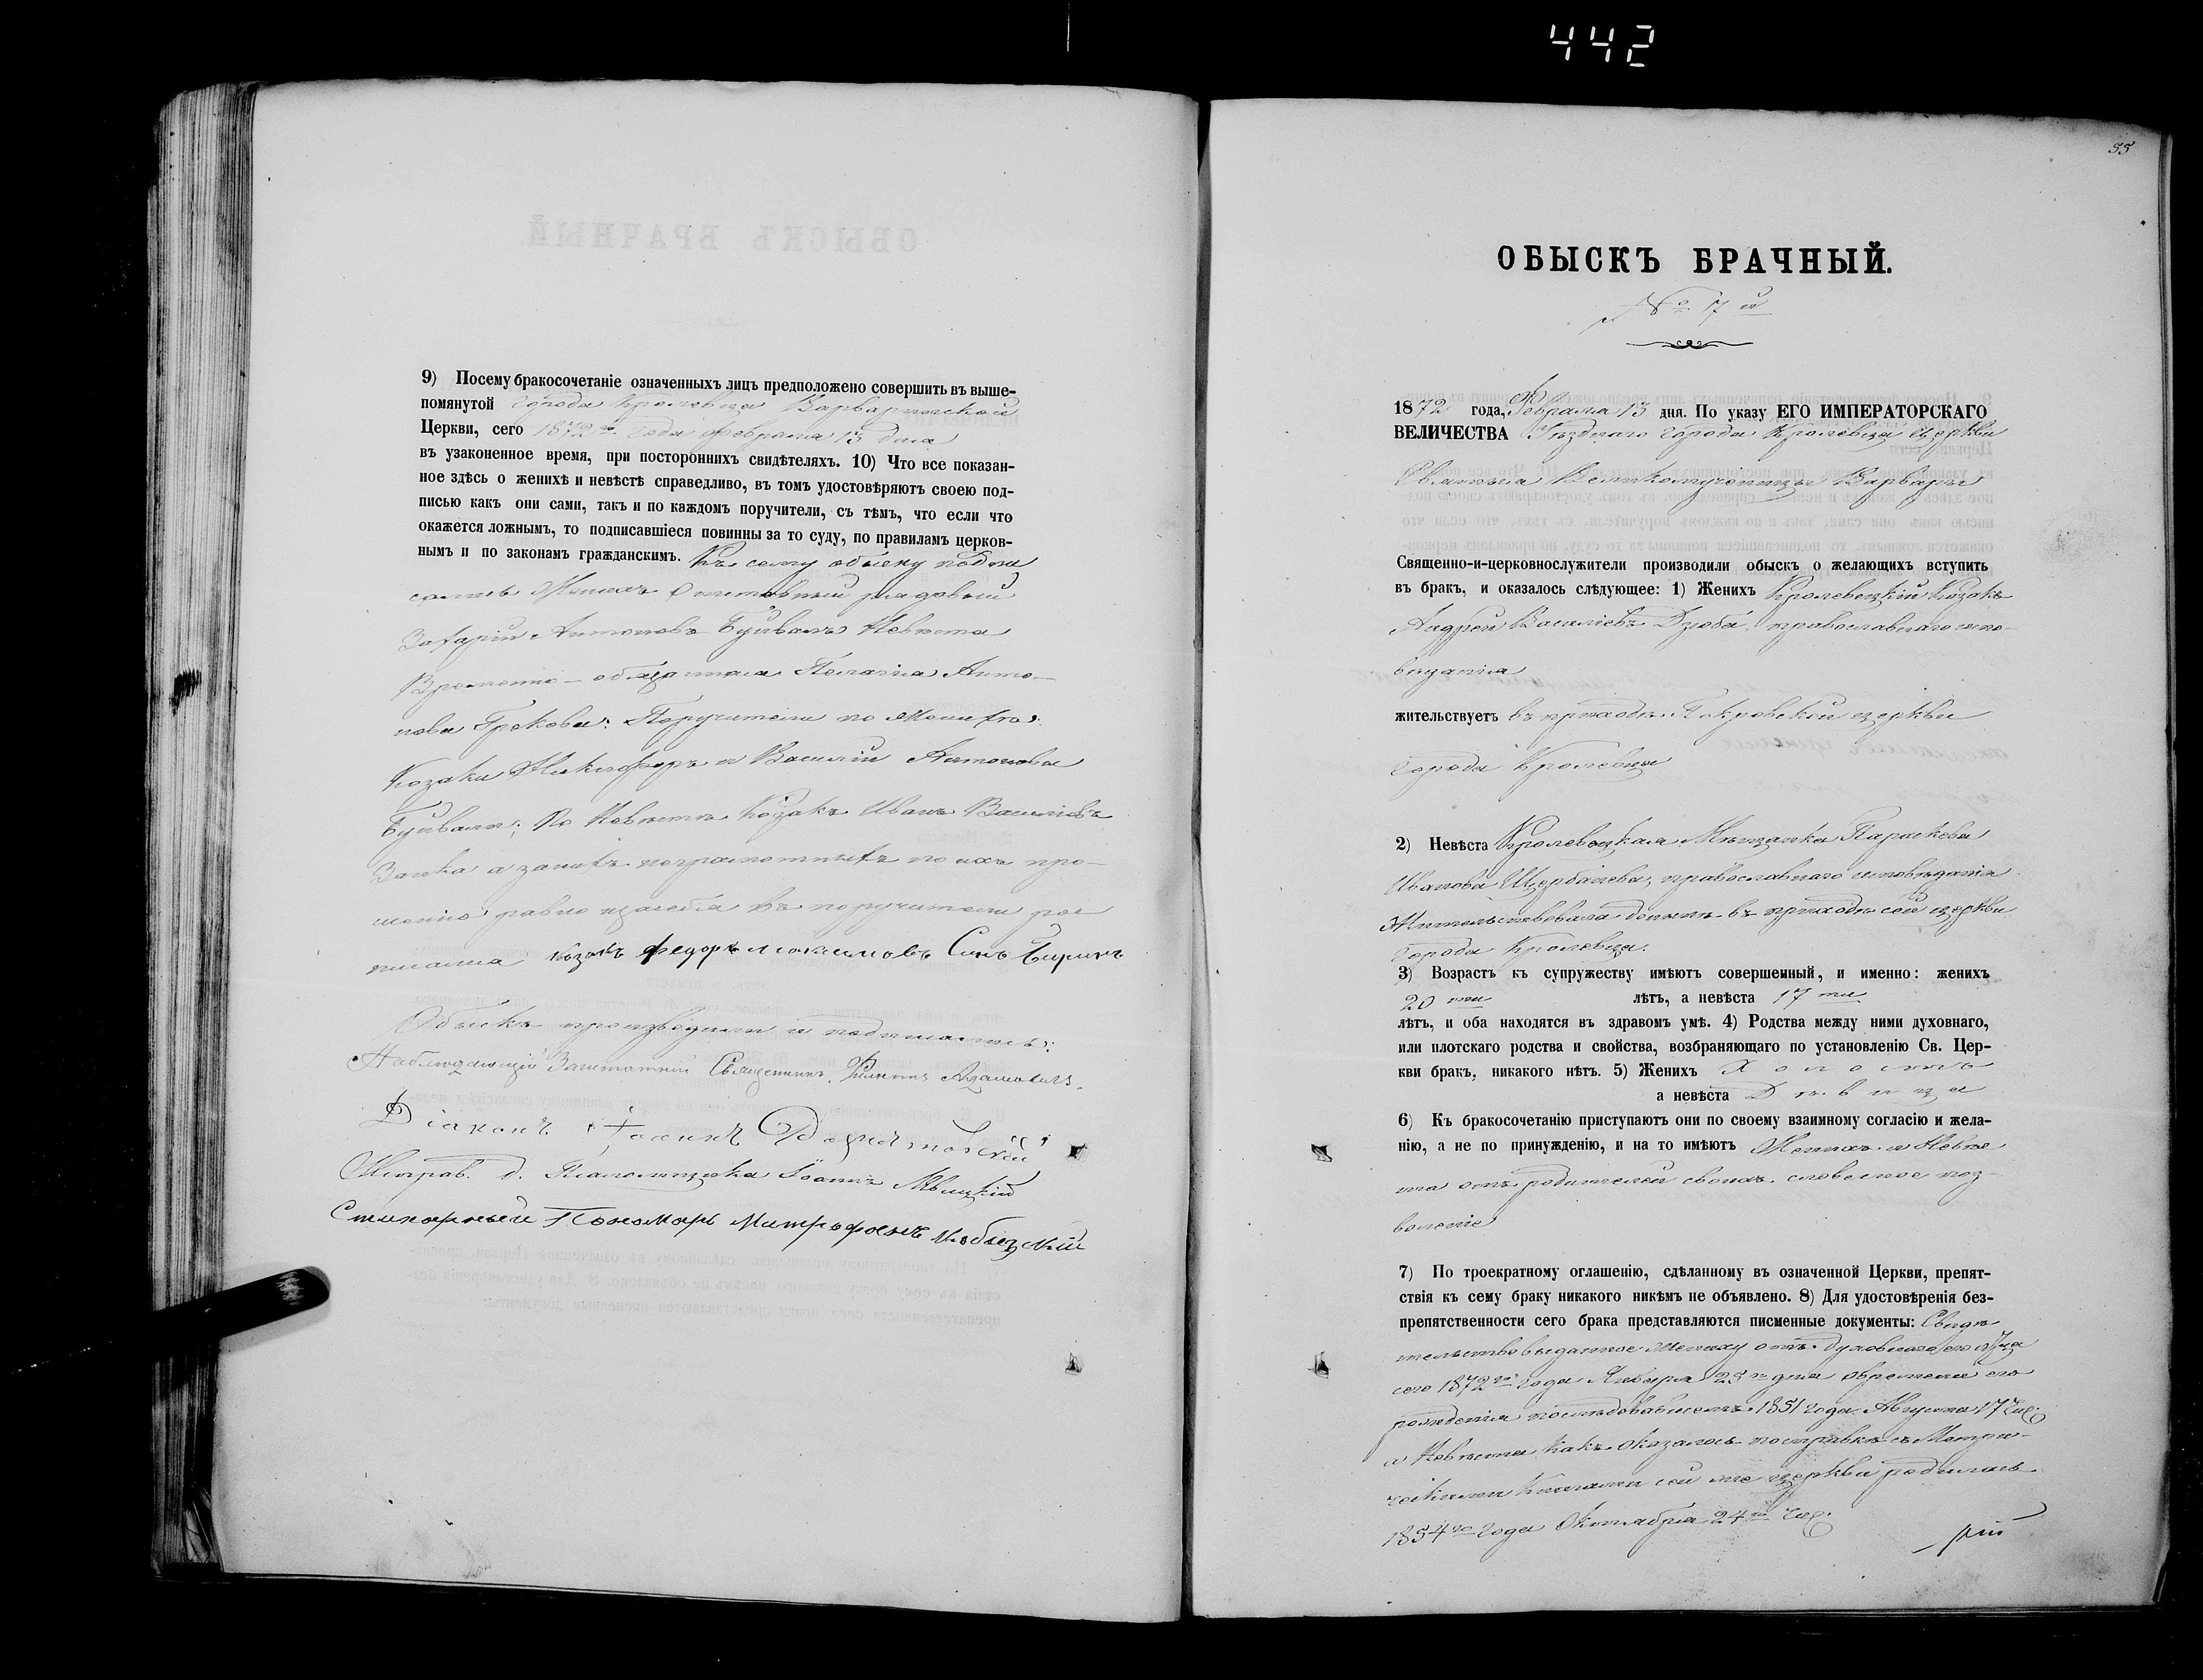 442
9) Посему бракосочетаніе означенныхъ лицъ предположено совершить въ выше-
помянутой города Кролевца Варваринской
Церкви, сего 1872го года Февраля 13 дня
въ узаконенное время, при постороннихъ свидѣтеляхъ. 10) Что все показан-
ное здѣсь о женихѣ и невѣстѣ справедливо, въ томъ удостовѣряютъ своею под-
писью какъ они сами, такъ и по каждомъ поручители, съ тѣмъ, что если что
окажется ложнымъ, то подписавшіеся повинны за то суду, по правиламъ церков-
нымъ и по законамъ гражданскимъ. Къ сему обыску подпи
сались Женихъ рядовый
Захарій Антоновъ Буйвалъ Невѣста
Временно-обязанная Пелагія Анто-
нова Грекова: Поручители по Женихѣ:
Козаки Никифоръ и Василій Антоновы
Буйвалы; По Невѣстѣ Козакъ Иванъ Васильевъ
Заика а за нихъ неграмотныхъ по ихъ про-
шенію равно и за себя въ поручители рос
писался козакъ Федоръ Максимовъ Синъ
Обыскъ производили и подписались:
Наблюдающій Заштатный Священникъ Филиппъ Адамовичъ
Діаконъ
Исправ. д. Псаломщика Іоаннъ
Стихарный Пономарь Митрофанъ
55
ОБЫСКЪ БРАЧНЫЙ.
№ 17й
1872 года, Февраля 13 дня. По указу ЕГО ИМПЕРАТОРСКАГО
ВЕЛИЧЕСТВА Уѣзднаго города Кролевца церкви
Святыя Великомученицы Варвары
Священно-и-церковнослужители производили обыскъ о желающихъ вступить
въ бракъ, и оказалось слѣдующее: 1) Женихъ Кролевецкій Козакъ
Андрей Васильевъ Дзюба, православнаго испо-
вѣданія
жительствуетъ въ приходѣ Покровской церкви
города Кролевца
2) Невѣста Кролевецкая Мѣщанка Параскева
Иванова Щербачева, православнаго исповѣданія
Жительствовала донынѣ въ приходѣ сей церкви
города Кролевца.
3) Возрастъ къ супружеству имѣютъ совершенный, и именно: женихъ
20 ти лѣтъ, а невѣста 17 ти
лѣтъ, и оба находятся въ здравомъ умѣ. 4) Родства между ними духовнаго,
или плотскаго родства и свойства, возбраняющаго по установленію Св. Цер-
кви бракъ, никакого нѣтъ. 5) Женихъ Холостъ
а невѣста Дѣвица
6) Къ бракосочетанію приступаютъ они по своему взаимному согласію и жела-
нію, а не по принужденію, и на то имѣютъ Женихъ и Невѣс
та отъ родителей своихъ словесное поз-
воленіе
7) По троекратному оглашенію, сдѣланному въ означенной Церкви, препят-
ствія къ сему браку никакого никѣмъ не объявлено. 8) Для удостовѣренія без-
препятственности сего брака представляются писменные документы: Свидѣ
тельство выданное Жениху отъ духовнаго его отца
сего 1872го года Января 23го дня о времени его
рожденія послѣдовавшемъ 1851 года Августа 17 чис.
а Невѣста какъ оказалось по справкѣ съ Метри-
ческими Книгами сей же церкви родилась
1854го года Октября 24го чис.